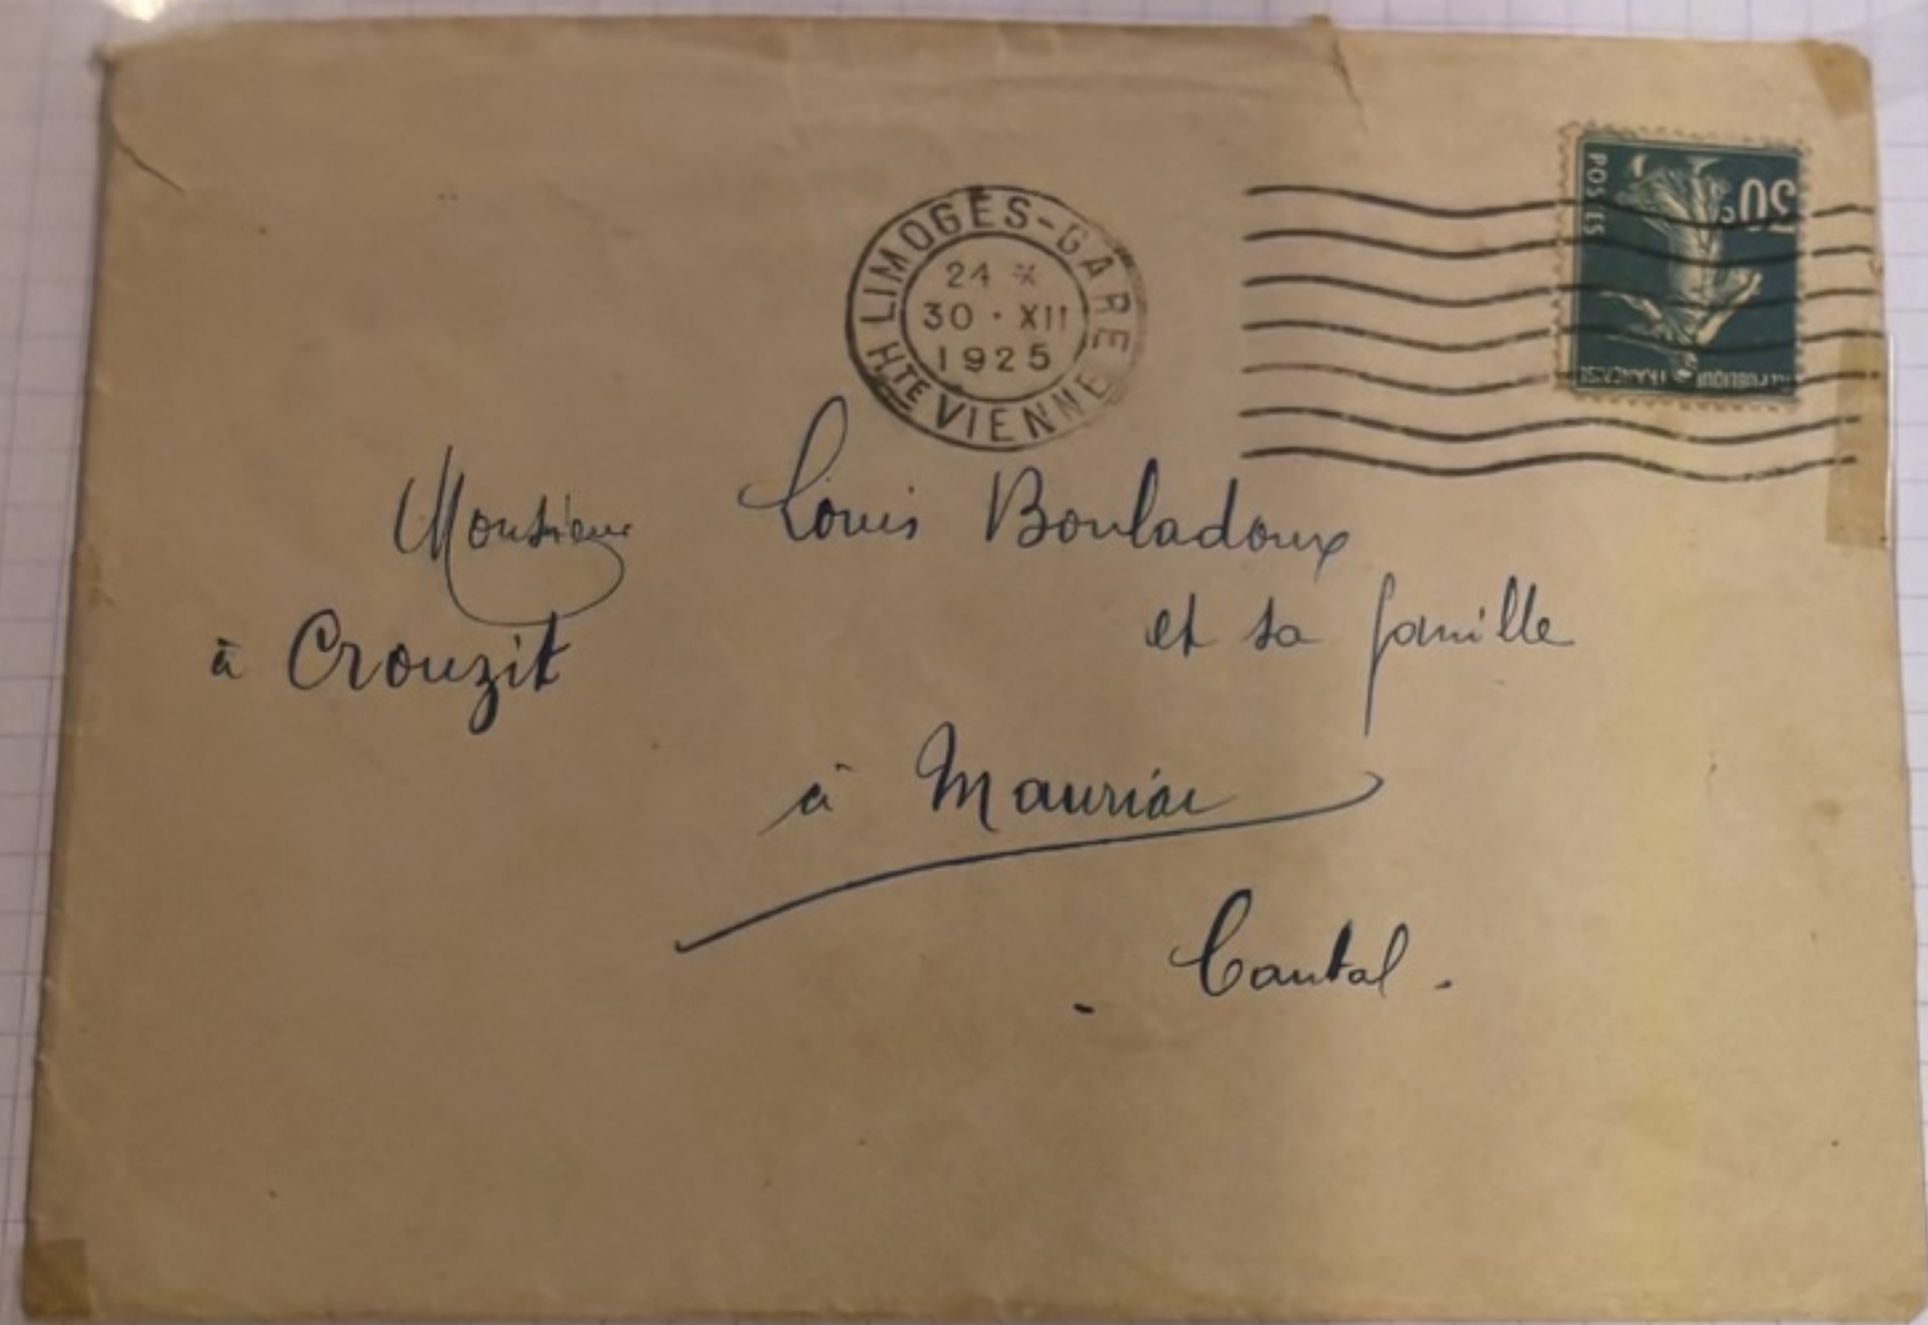 LIMOGES-GARE
24 *
30 · XII
1925
HTE VIENNE
POSTES
30c
REPUBLIQUE FRANÇAISE
Monsieur Louis Bouladoux
et sa famille
à Crouzit
à Mauriac
Cantal.